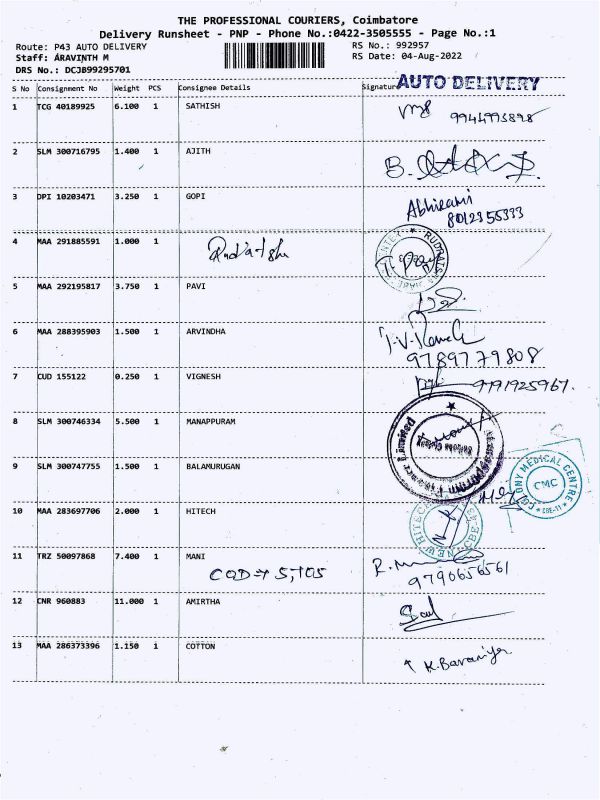 THE PROFESSIONAL COURIERS, Coimbatore
Delivery Runsheet - PNP - Phone No.:0422-3505555 - Page No.:1
Route: P43 AUTO DELIVERY RS No.: 992957
Staff: ARAVINTH M RS Date: 04-Aug-2022
DRS No.: DCJB99295701
AUTO DELIVERY
S No Consignment No Weight PCS Consignee Details Signature
1 TCG 40189925 6.100 1 SATHISH
2 SLM 300716795 1.400 1 AJITH
3 DPI 10203471 3.250 1 GOPI Abhirami
8012355333
4 MAA 291885591 1.000 1
5 MAA 292195817 3.750 1 PAVI
6 MAA 288395903 1.500 1 ARVINDHA
9789779808
7 CUD 155122 0.250 1 VIGNESH
8 SLM 300746334 5.500 1 MANAPPURAM
9 SLM 300747755 1.500 1 BALAMURUGAN
COLONY MEDICAL CENTRE
CMC
CBE-11
10 MAA 283697706 2.000 1 HITECH
11 TRZ 50097868 7.400 1 MANI
COD → 5,705 9790656561
12 CNR 960883 11.000 1 AMIRTHA
13 MAA 286373396 1.150 1 COTTON